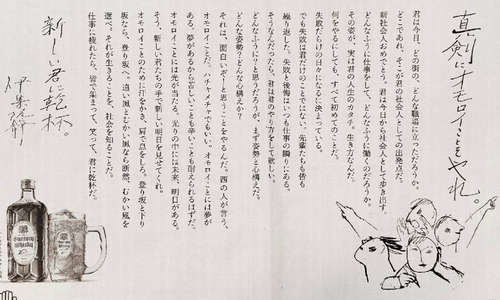 真剣にオモロイことをやれ。
君は今日、どの街の、どんな職場に立っただろうか。
どこであれ、そこが君の社会人としての出発点だ。
新社会人おめでとう。君は今日から社会人として歩き出す。
どんなふうに仕事をして、どんなふうに働くのだろうか。
その姿が、実は君の人生のカタチ、生き方なんだ。
何をやるにしても、すべて初めてのことだ。
失敗だらけの日々になるに決まっている。
でも失敗は君だけのものじゃない。先輩たちも皆
繰り返した。失敗と後悔はいつも仕事の隣りにある。
そうなんだったら、君は君のやり方をして欲しい。
どんなふうに？と思うだろうが、まず姿勢と心構えだ。
どんな姿勢？どんな心構えか？
それは、面白いぞ！と思うことをやるんだ。西の人が言う、
オモロイことだ。ハチャメチャでもいい。オモロイことには夢が
ある。夢があるから苦しいことも辛いことも耐えられるはずだ。
オモロイことには光が当たる。光りの中には未来、明日がある。
そう、新しい君たちの手で新しい明日を見せてくれ。
オモロイことのために汗をかき、肩で息をしろ。登り坂と下り
坂なら、登り坂へ。追い風とむかい風なら断然、むかい風を
選べ。それが生きることだ、社会を知ることだ。
仕事に疲れたら、皆で集まって、笑って、君に乾杯だ。
新しい君に乾杯。
伊集院静
Suntory
Whisky